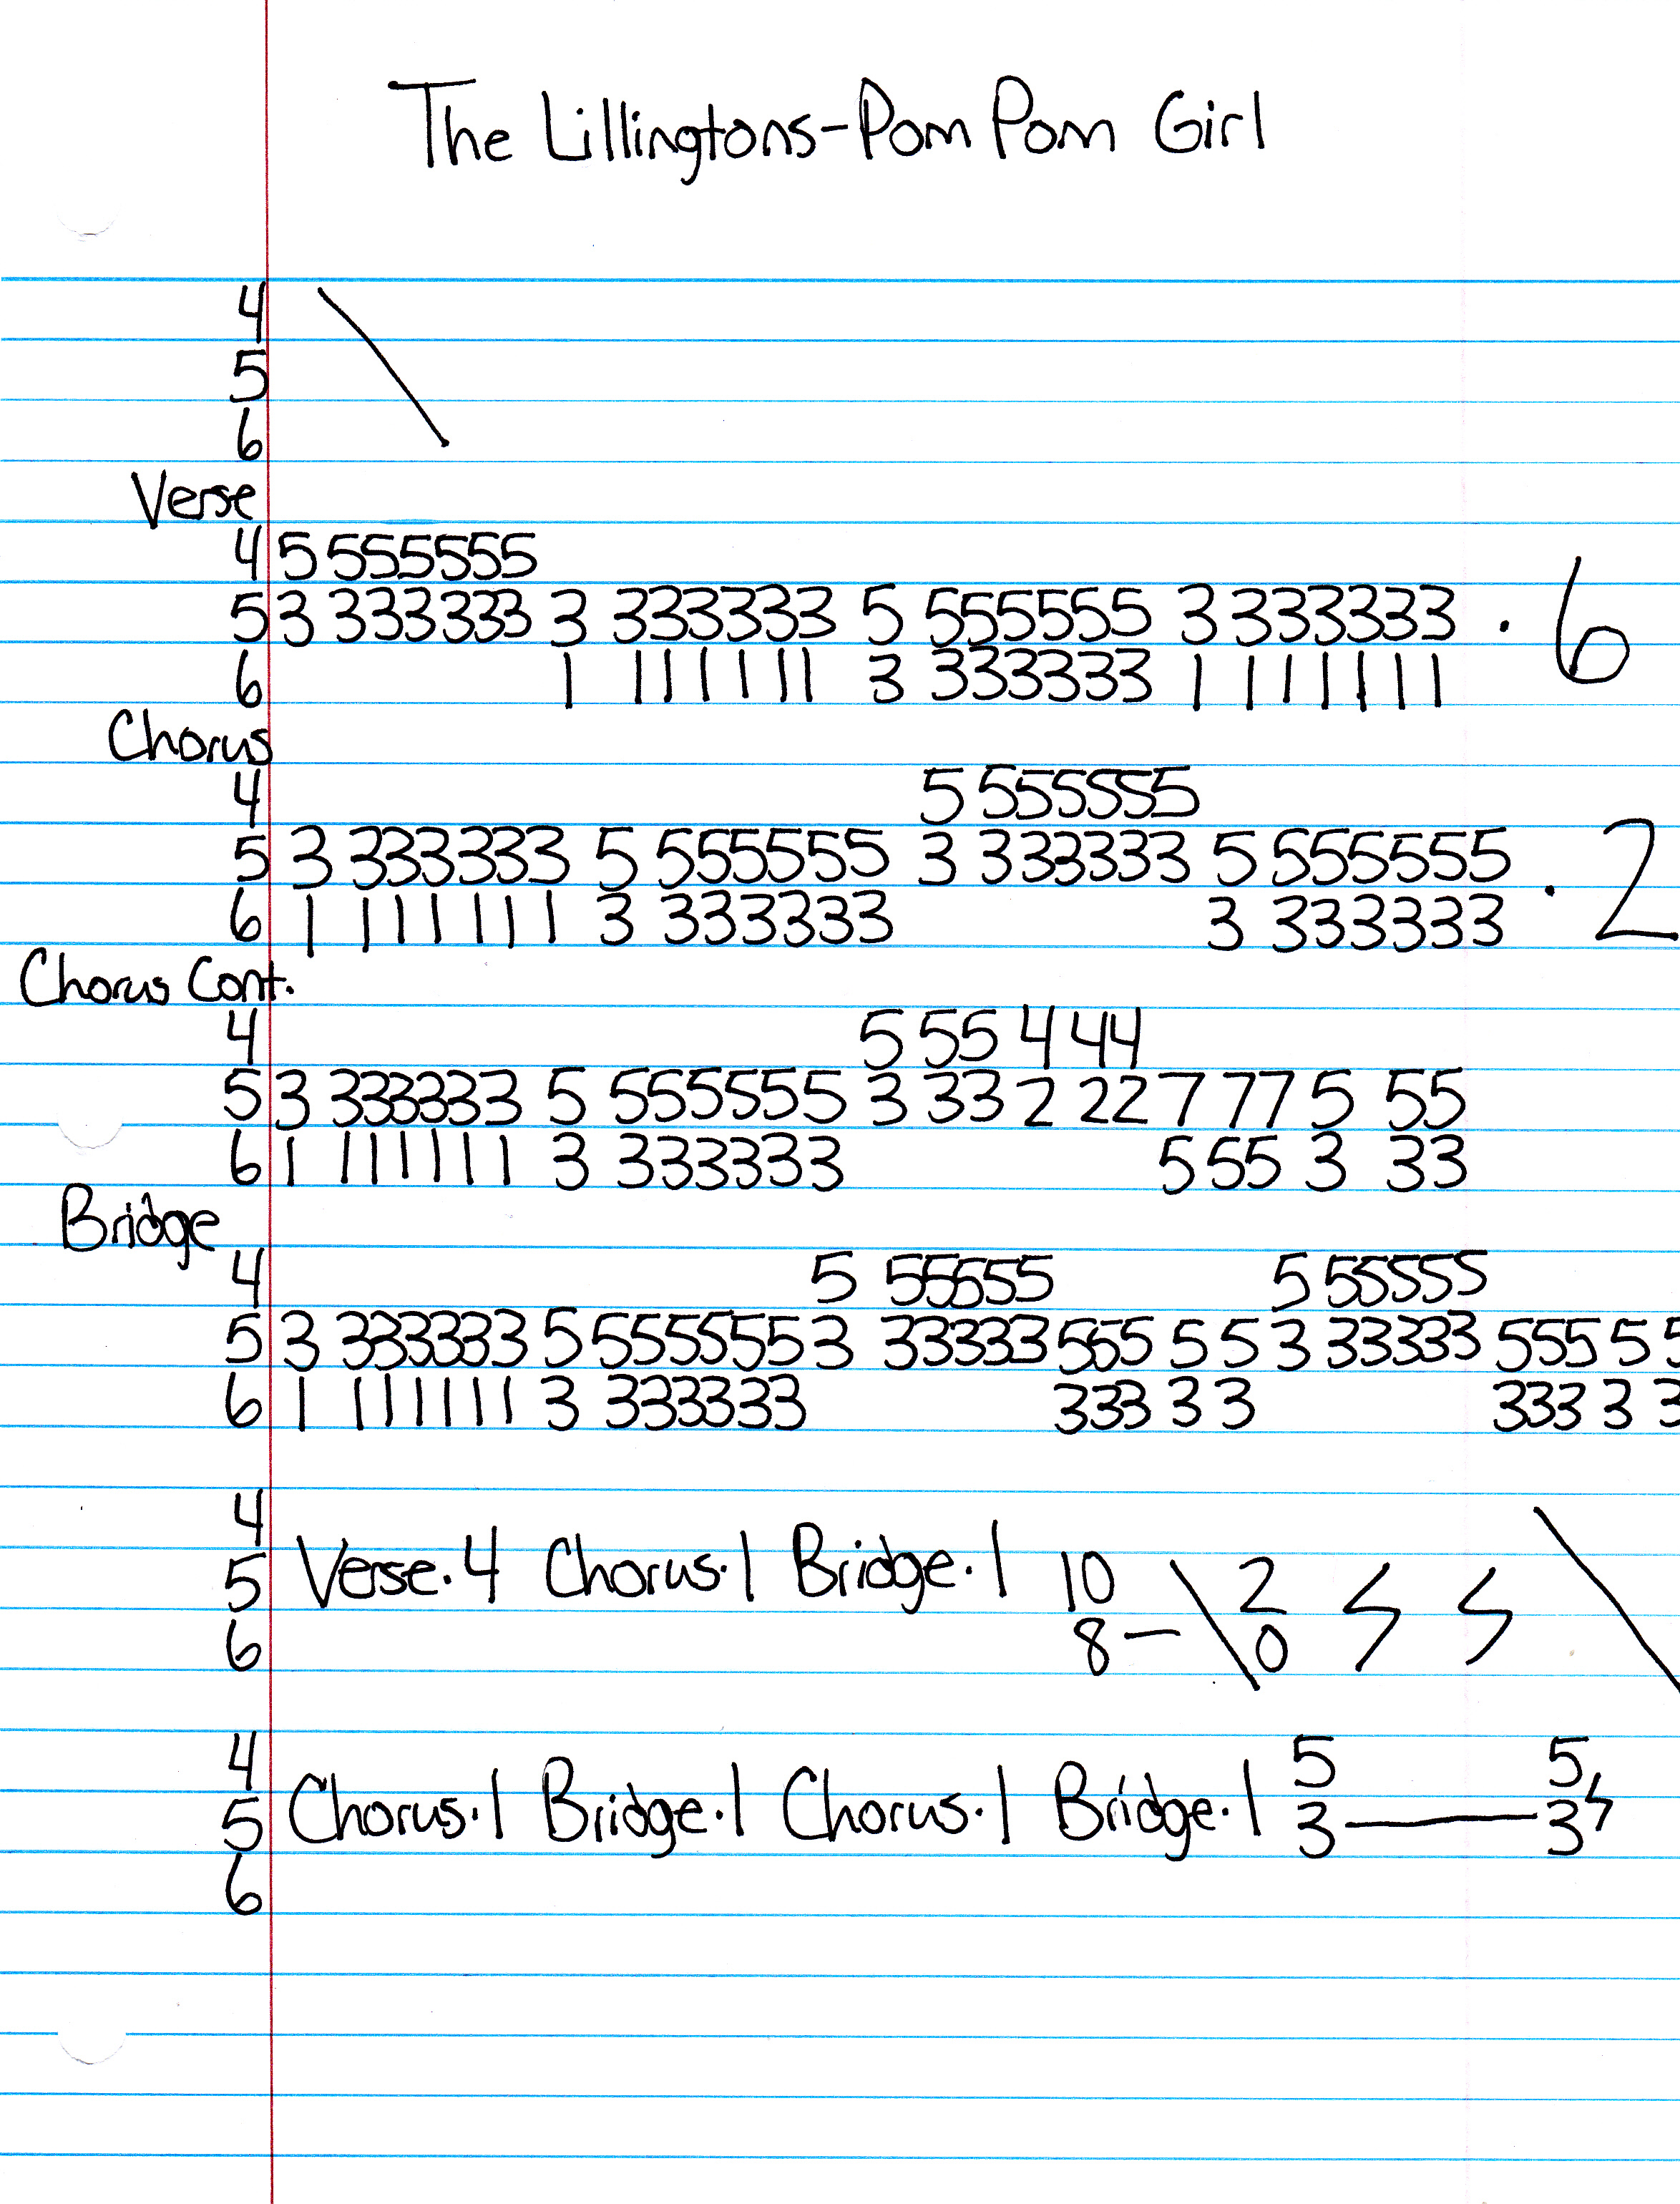 The Lillingtons-Pom Pom Girl
4 \
5
6
Verse
4 5 555555
5 3 333333 3 333333 5 555555 3 333333 · 6
6 1 111111 3 333333 1 111111
Chorus
4 5 555555
5 3 333333 5 555555 3 333333 5 555555 · 2
6 1 111111 3 333333 3 333333
Chorus Cont.
4 5 55 4 44
5 3 333333 5 555555 3 33 2 22 7 77 5 55
6 1 111111 3 333333 5 55 3 33
Bridge
4 5 55555 5 55555
5 3 333333 5 555555 3 33333 555 5 5 3 33333 555 5 5
6 1 111111 3 333333 333 3 3 333 3 3
4
5 Verse·4 Chorus·1 Bridge·1 10 \ 2
6 8 — 0
4 5 5
5 Chorus·1 Bridge·1 Chorus·1 Bridge·1 3 — 3
6